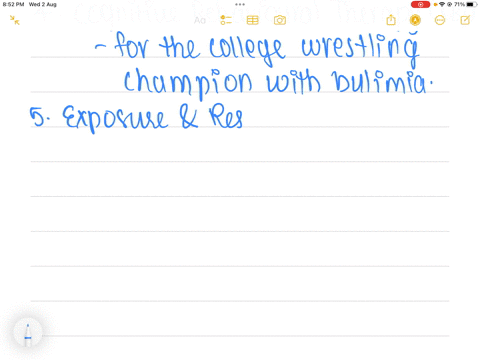 8:52 PM Wed 2 Aug
71%
Aa
- for the college wrestling
champion with bulimia.
5. Exposure & Res